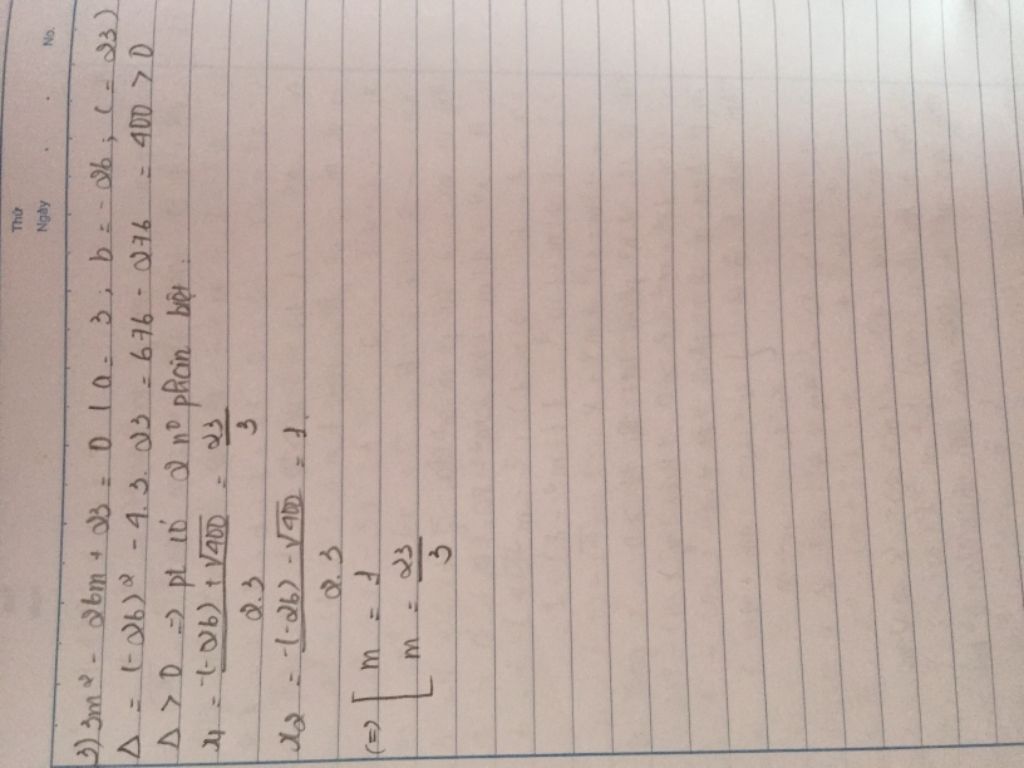 Thứ
Ngày No.
2) 3m² - 26m + 23 = 0 (a = 3; b = -26; c = 23)
Δ = (-26)² - 4.3.23 = 676 - 276 = 400 > 0
Δ > 0 => pt có 2 n⁰ phân biệt.
x₁ = -(-26) + √400 / 2.3 = 23/3
x₂ = -(-26) - √400 / 2.3 = 1.
(=) [ m = 1
m = 23/3